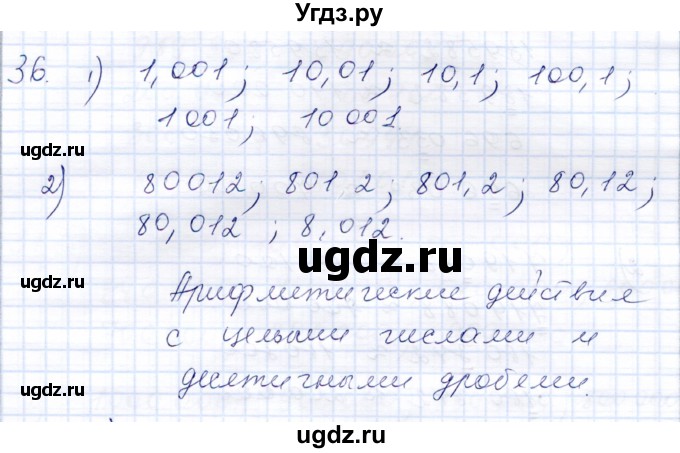 Угдз.ру
36. 1) 1,001; 10,01; 10,1; 100,1;
1 001; 10 001.
ugdz.ru ugdz.ru
2) 80012; 801 2; 801,2; 80,12;
ugdz.ru
80,012 ; 8,012.
ugdz.ru
Арифметические действия
ugdz.ru
с целыми числами и
десятичными дробями.
ugdz.ru ugdz.ru
ugdz.ru